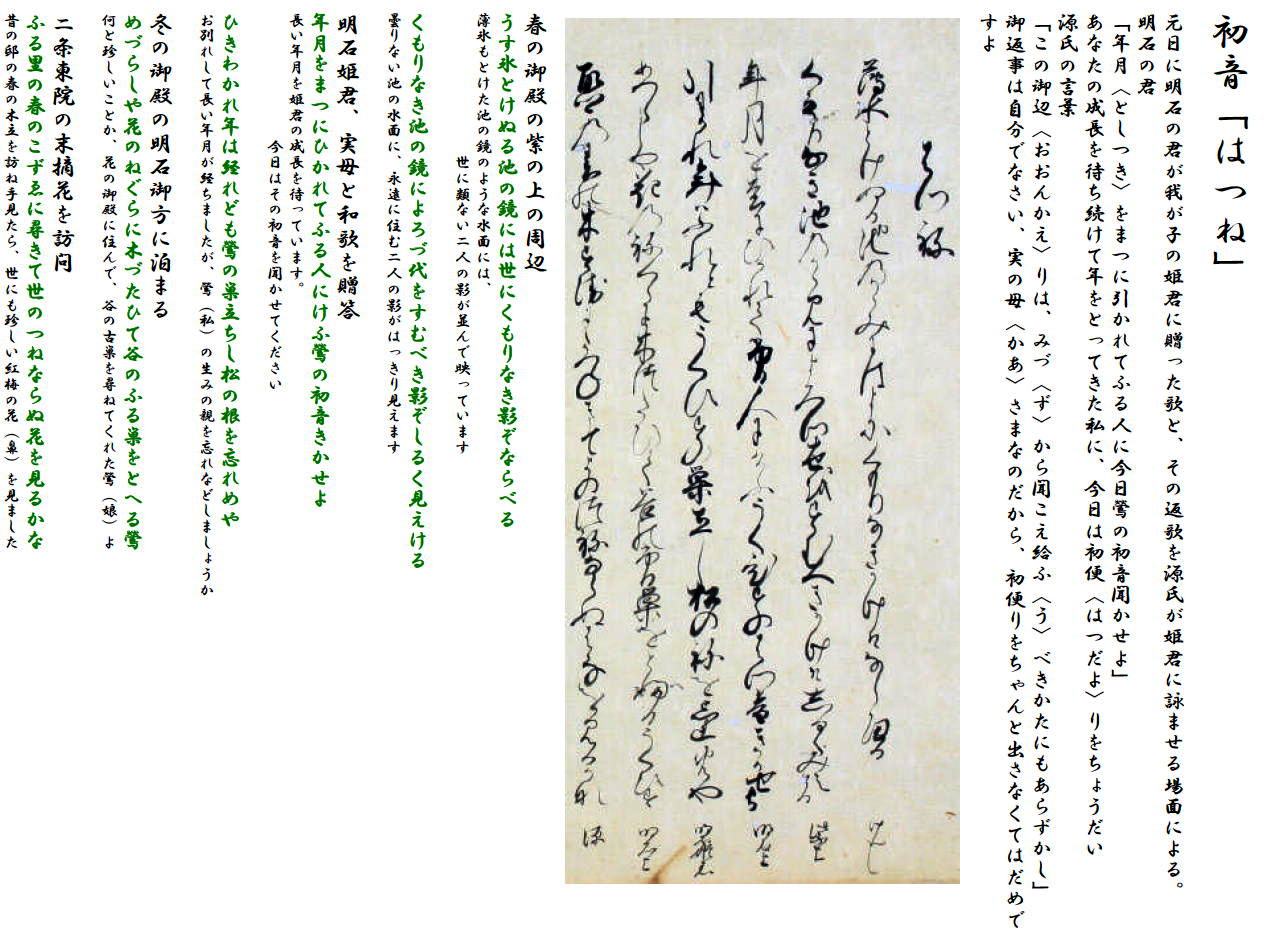 初音「はつね」
元日に明石の君が我が子の姫君に贈った歌と、その返歌を源氏が姫君に詠ませる場面による。
明石の君
「年月〈としつき〉をまつに引かれてふる人に今日鶯の初音聞かせよ」
あなたの成長を待ち続けて年をとってきた私に、今日は初便〈はつだよ〉りをちょうだい
源氏の言葉
「この御辺〈おおんかえ〉りは、みづ〈ず〉から聞こえ給ふ〈う〉べきかたにもあらずかし」
御返事は自分でなさい、実の母〈かあ〉さまなのだから、初便りをちゃんと出さなくてはだめで
すよ
はつ祢
薄氷とけぬる池のかゝみにはよにくもりなきかけそならへる
くもりなき池のかゝみによろつ世をすむへきかけそしるくみえける
年月を春にひかれてふる人にけふうくひすのはつ音きかせよ
引わかれ年はふれともうくひすの巣立し松の祢を忘れめや
めつらしや花の祢くらに木つたひて谷の古巣をとへるうくひす
春の御殿の紫の上の周辺
うす氷とけぬる池の鏡には世にくもりなき影ぞならべる
薄氷もとけた池の鏡のような水面には、
世に類ない二人の影が並んで映っています
くもりなき池の鏡によろづ代をすむべき影ぞしるく見えける
曇りない池の水面に、永遠に住む二人の影がはっきり見えます
明石姫君、実母と和歌を贈答
年月をまつにひかれてふる人にけふ鶯の初音きかせよ
長い年月を姫君の成長を待っています。
今日はその初音を聞かせてください
ひきわかれ年は経れども鶯の巣立ちし松の根を忘れめや
お別れして長い年月が経ちましたが、鶯（私）の生みの親を忘れなどしましょうか
冬の御殿の明石御方に泊まる
めづらしや花のねぐらに木づたひて谷のふる巣をとへる鶯
何と珍しいことか、花の御殿に住んで、谷の古巣を尋ねてくれた鶯（娘）よ
二条東院の末摘花を訪問
ふる里の春のこずゑに尋きて世のつねならぬ花を見るかな
昔の邸の春の木立を訪ね手見たら、世にも珍しい紅梅の花（鼻）を見ました